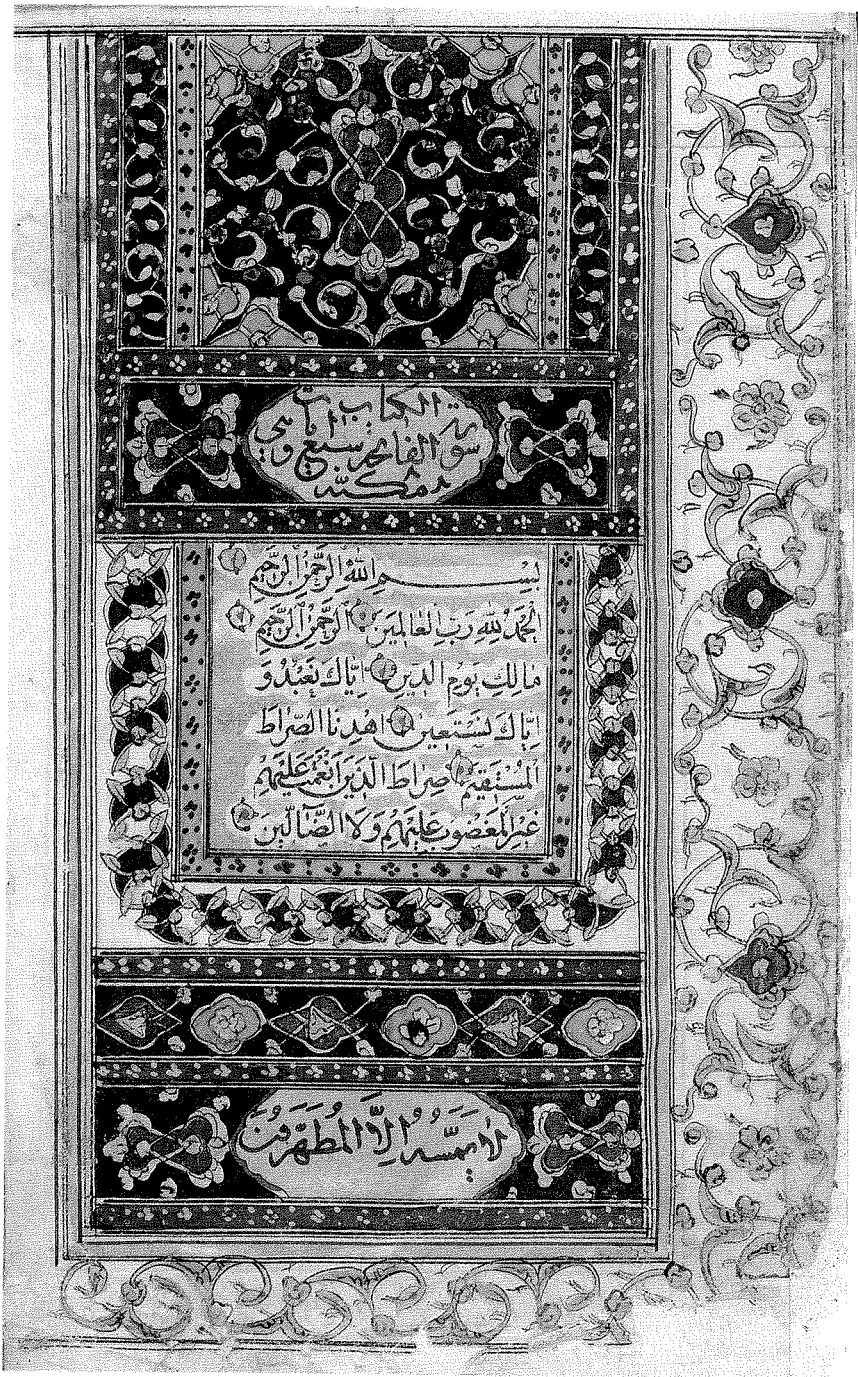 سورة الفاتحة الكتاب سبع ايات وهي
مكية
بِسْمِ اللهِ الرَّحْمٰنِ الرَّحِيمِ
اَلْحَمْدُ لِلّٰهِ رَبِّ الْعَالَمِينَ اَلرَّحْمٰنِ الرَّحِيمِ
مَالِكِ يَوْمِ الدِّينِ اِيَّاكَ نَعْبُدُ وَ
اِيَّاكَ نَسْتَعِينُ اِهْدِنَا الصِّرَاطَ
الْمُسْتَقِيمَ صِرَاطَ الَّذِينَ اَنْعَمْتَ عَلَيْهِمْ
غَيْرِ الْمَغْضُوبِ عَلَيْهِمْ وَلَا الضَّالِّينَ
لَا يَمَسُّهُ اِلَّا الْمُطَهَّرُونَ